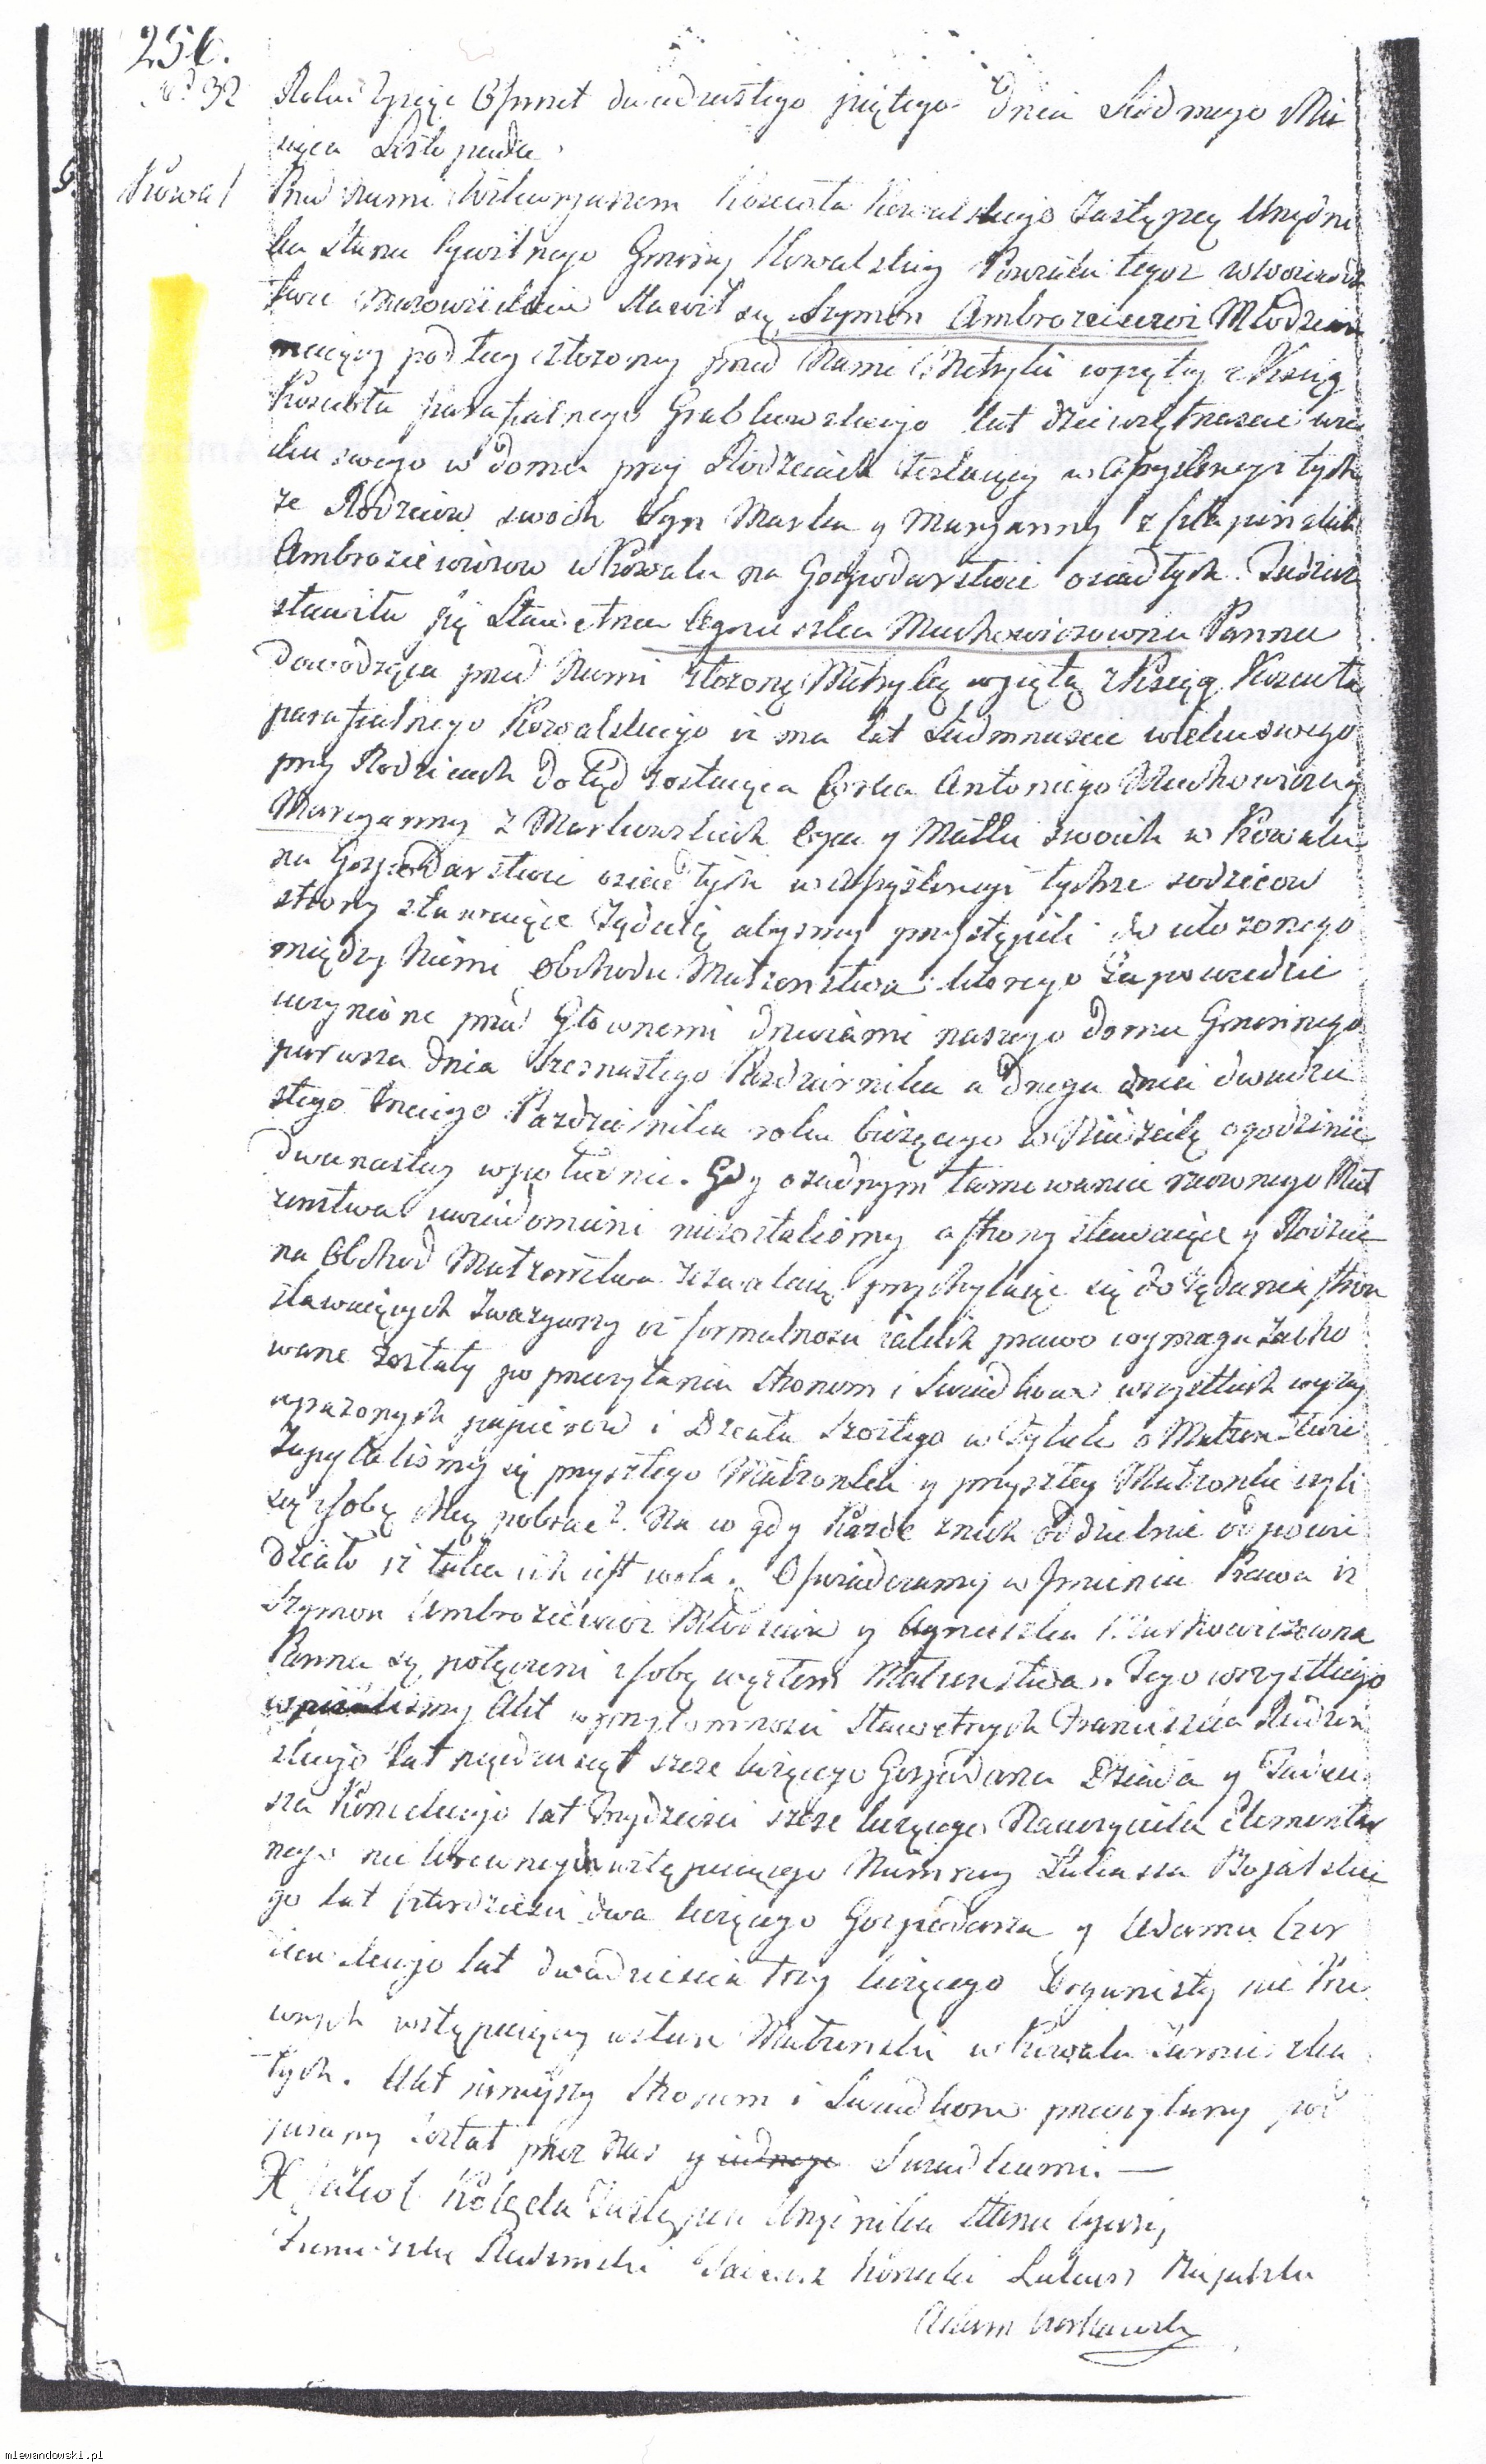 256.
No 32 Roku Tysiąc Osmset dwudziestego piątego Dnia Siódmego Mie
siąca Listopada.
Kowal Przed Nami Wikaryuszem Koscioła Kowalskiego Zastępcą Urzędni
ka Stanu Cywilnego Gminy Kowalskiey Powiatu tegoż w Woiewodz
twie Mazowieckim Stawił się Szymon Ambroziewicz Młodzian
maiący podług złożoney przed Nami Metryki wyiętey z Xsiąg
Koscioła parafialnego Grabkowskiego lat dziewiętnascie wie
ku swego w domu przy Rodzicach zostaiący w Assystencyi tych
że Rodziców swoich Syn Marka y Maryanny z
Ambroziewiczow w Kowalu na Gospodarstwie osiadłych. Tudzież
stawiła się Sławetna Agnieszka Muchowiczowna Panna
dowodząca przed Nami złożoną Metryką wyiętą z Xsiąg Koscioła
parafialnego Kowalskiego iż ma lat Siedmnascie wieku swego
przy Rodzicach dotąd zostaiąca Corka Antoniego Muchowicza y
Maryanny z Markowskich Oyca y Matki swoich w Kowalu
na Gospodarstwie osiadłych w Assystencyi tychże rodziców
strony stawaiące żądaią abysmy przystąpili do ułożonego
między Niemi Obchodu Małżenstwa ktorego Zapowiedzie
uczynione przed Głownemi drzwiami naszego domu Gminnego
pierwsza dnia Szesnastego Pazdziernika a druga dnia dwudzie
stego trzeciego Pazdziernika roku bieżącego w Niedzielę o godzinie
dwunastey w południe. Gdy o żadnym tamowaniu rzeczonego Mał
żenstwa uwiadomieni niezostalismy a strony stawaiące y Rodzice
na Obchod Małżenstwa zezwalaią przychylaiąc się do żądania stron
stawaiących zwazywszy iż formalnosci iakich prawo wymaga zacho
wane zostały po przeczytaniu Stronom i Swiadkom wszystkich wyżey
wyrażonych papierow i Działu Szostego w Tytule o Małżenstwie
Zapytalismy się przyszłego Małżonka y przyszłey Małżonki czyli
się z sobą chcą pobrac? Na co gdy Każde z nich oddzielnie odpowie
działo iż taka ich iest wola. Oswiadczamy w Imieniu Prawa iż
Szymon Ambroziewicz Młodzian y Agnieszka Muchowiczowna
Panna są połączeni z sobą węzłem Małżenstwa. Tego wszystkiego
spisalismy Akt w przytomnosci Sławetnych Franciszka
skiego lat pięcdziesiąt szesc liczącego Gospodarza Dziada y Tadeu
sza Koneckiego lat trzydziesci szesc liczącego Nauczyciela Elementar
nego nie krewnego wstępuiącego Niemniey Łukasza
go lat czterdziesci dwa liczącego Gospodarza y Adama Czer
kawskiego lat dwadziescia trzy liczącego Organisty nie kre
wnych wstępuiących w stan Małżenski w Kowalu zamieszka
łych. Akt ninieyszy Stronom i Swiadkom przeczytany pod
pisany został przez Nas y iednego Swiadkami. —
X Jakob Kolęda Zastępca Urzędnika Stanu Cywil
Franciszek Tadeusz Konecki Łukasz
Adam Czerkawski
mlewandowski.pl